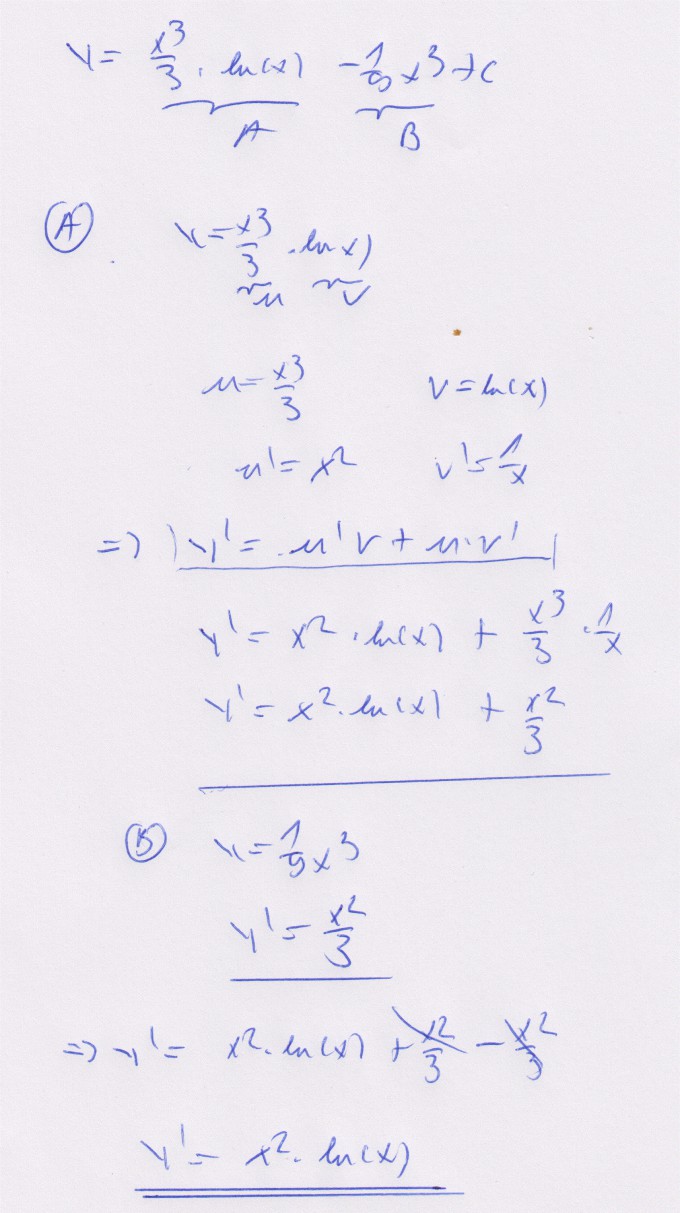 y = x³/3 · ln(x) - 1/9 x³ + c
A B
(A) y = x³/3 · ln x)
u v
u = x³/3 v = ln(x)
u' = x² v' = 1/x
=> | y' = u'v + u·v' |
y' = x² · ln(x) + x³/3 · 1/x
y' = x² · ln(x) + x²/3
(B) y = 1/9 x³
y' = x²/3
=> y' = x² · ln(x) + x²/3 - x²/3
y' = x² · ln(x)